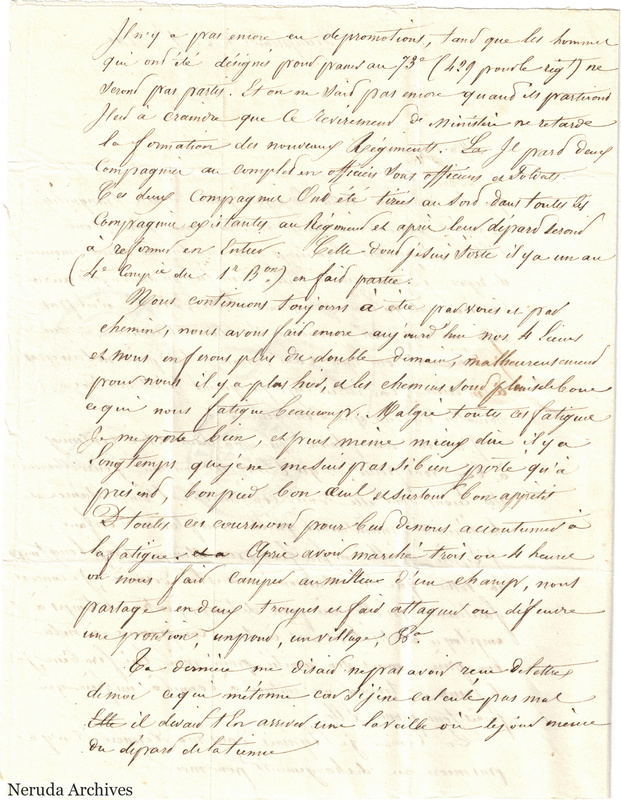 Il n'y a pas encore eu de promotions, tand que les hommes
qui ont été désignés pour passer au 73e (421 pour le rigt) ne
seront pas partis. Et on ne said pas encore quand ils partiront
Il est à craindre que ce revirement de Ministère ne retarde
la formation des nouveaux Régiments. Il pard deux
Compagnies au complet en officiers sous officiers et soldats.
Ces deux Compagnies ont été tirées au sord dans toutes les
Compagnies existantes au Régiment et après leur départ seront
à reformer en Entier. Celle dont je suis sorti il y a un an
(4e Compie du 1r Bon) en faid partie.
Nous continuons toujours à etre par voies et par
chemin, nous avons faid encore aujourd'hui nos 4 lieues
et nous en ferons plus du double demain, malheureusement
pour nous il y a plus hier, et les chemins sont pleins de boue
ce qui nous fatigue beaucoup. Malgré toutes ces fatigues
Je me porte bien, et puis meme mieux dire il y a
longtemps que je ne me suis pas si bien porté qu'à
présend, bon pied bon oeuil et surtout bon appetit
toutes ces courses ont pour but de nous accoutumer à
la fatigue. Après avoir marché trois ou 4 heures
on nous faid camper au milieu d'un champ, nous
partage en deux troupes et faid attaquer ou défendre
une position, un pond, un village, &a
Ta dernière me disaid ne pas avoir recu de lettres
de moi ce qui m'étonne car si je ne calcule pas mal
il devait t'en arriver une la veille où le jour même
du départ de la tienne
Neruda Archives